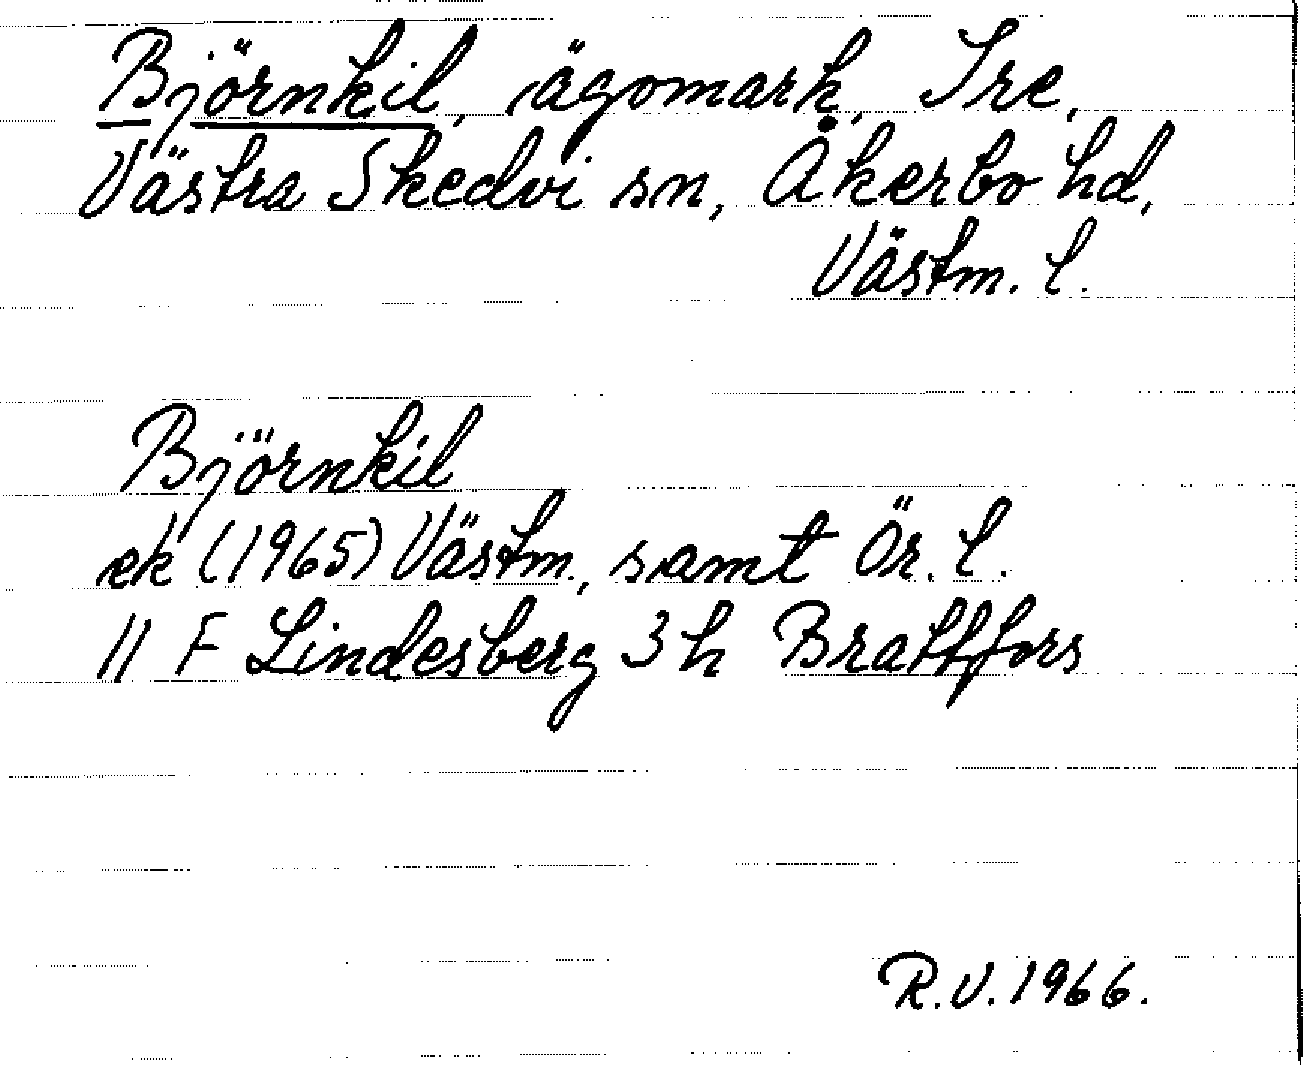 Björnkil, ägomark, Tre,
Västra Skedvi sn, Åkerbo hd,
Västm. l.
Björnkil
ek (1965) Västm., samt Ör. l.
11 F Lindesberg 3 h Brattfors
R.V. 1966.